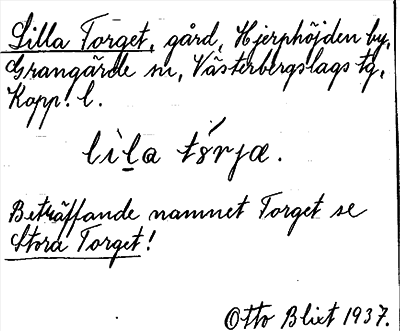 Lilla Torget, gård, Hjerphöjden by,
Grangärde sn, Västerbergslags tg,
Kopp. l.
lìl̲a tö́rjæ.
Beträffande namnet Torget se
Stora Torget!
Otto Blixt 1937.